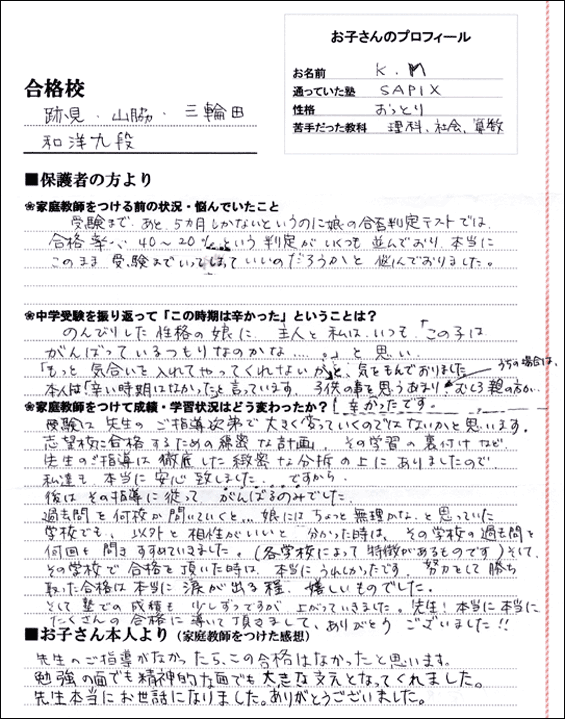 お子さんのプロフィール
お名前 K.M
通っていた塾 SAPIX
性格 おっとり
苦手だった教科 理科、社会、算数
合格校
跡見・山脇・三輪田
和洋九段
■保護者の方より
❀家庭教師をつける前の状況・悩んでいたこと
受験まで、あと5カ月しかないというのに娘の合否判定テストでは、
合格率、40〜20%という判定がいくつも並んでおり、本当に
このまま受験までいってしまっていいのだろうかと悩んでおりました。
❀中学受験を振り返って「この時期は辛かった」ということは?
のんびりした性格の娘に、主人と私は、いつも、「この子は
がんばっているつもりなのかな…。」と思い、
「もっと気合いを入れてやってくれないか」と、気をもんでおりました
本人は「辛い時期はなかった」と言っています。子供の事を思うあまり、むしろ親の方が
うちの場合は、
辛かったです。
❀家庭教師をつけて成績・学習状況はどう変わったか?
受験は先生のご指導次第で大きく変っていくのではないかと思います。
志望校に合格するための綿密な計画、その学習の裏付けなど、
先生のご指導は徹底した緻密な分析の上にありましたので
私達も本当に安心致しました…ですから、
後はその指導に従ってがんばるのみでした。
過去問を何校か開いていくと…娘にはちょっと無理かな、と思っていた
学校でも、以外と相性がいいと分かった時は、その学校の過去問を
何回も開きすすめていきました。(各学校によって特徴があるものです)そして、
その学校で合格を頂いた時は、本当にうれしかったです。努力をして勝ち
取った合格は本当に涙が出る程、嬉しいものでした。
そして塾での成績も少しずつですが上がっていきました。先生!本当に本当に
たくさんの合格に導いて頂きまして、ありがとうございました!!
■お子さん本人より(家庭教師をつけた感想)
先生のご指導がなかったら、この合格はなかったと思います。
勉強の面でも精神的な面でも大きな支えとなってくれました。
先生本当にお世話になりました。ありがとうございました。